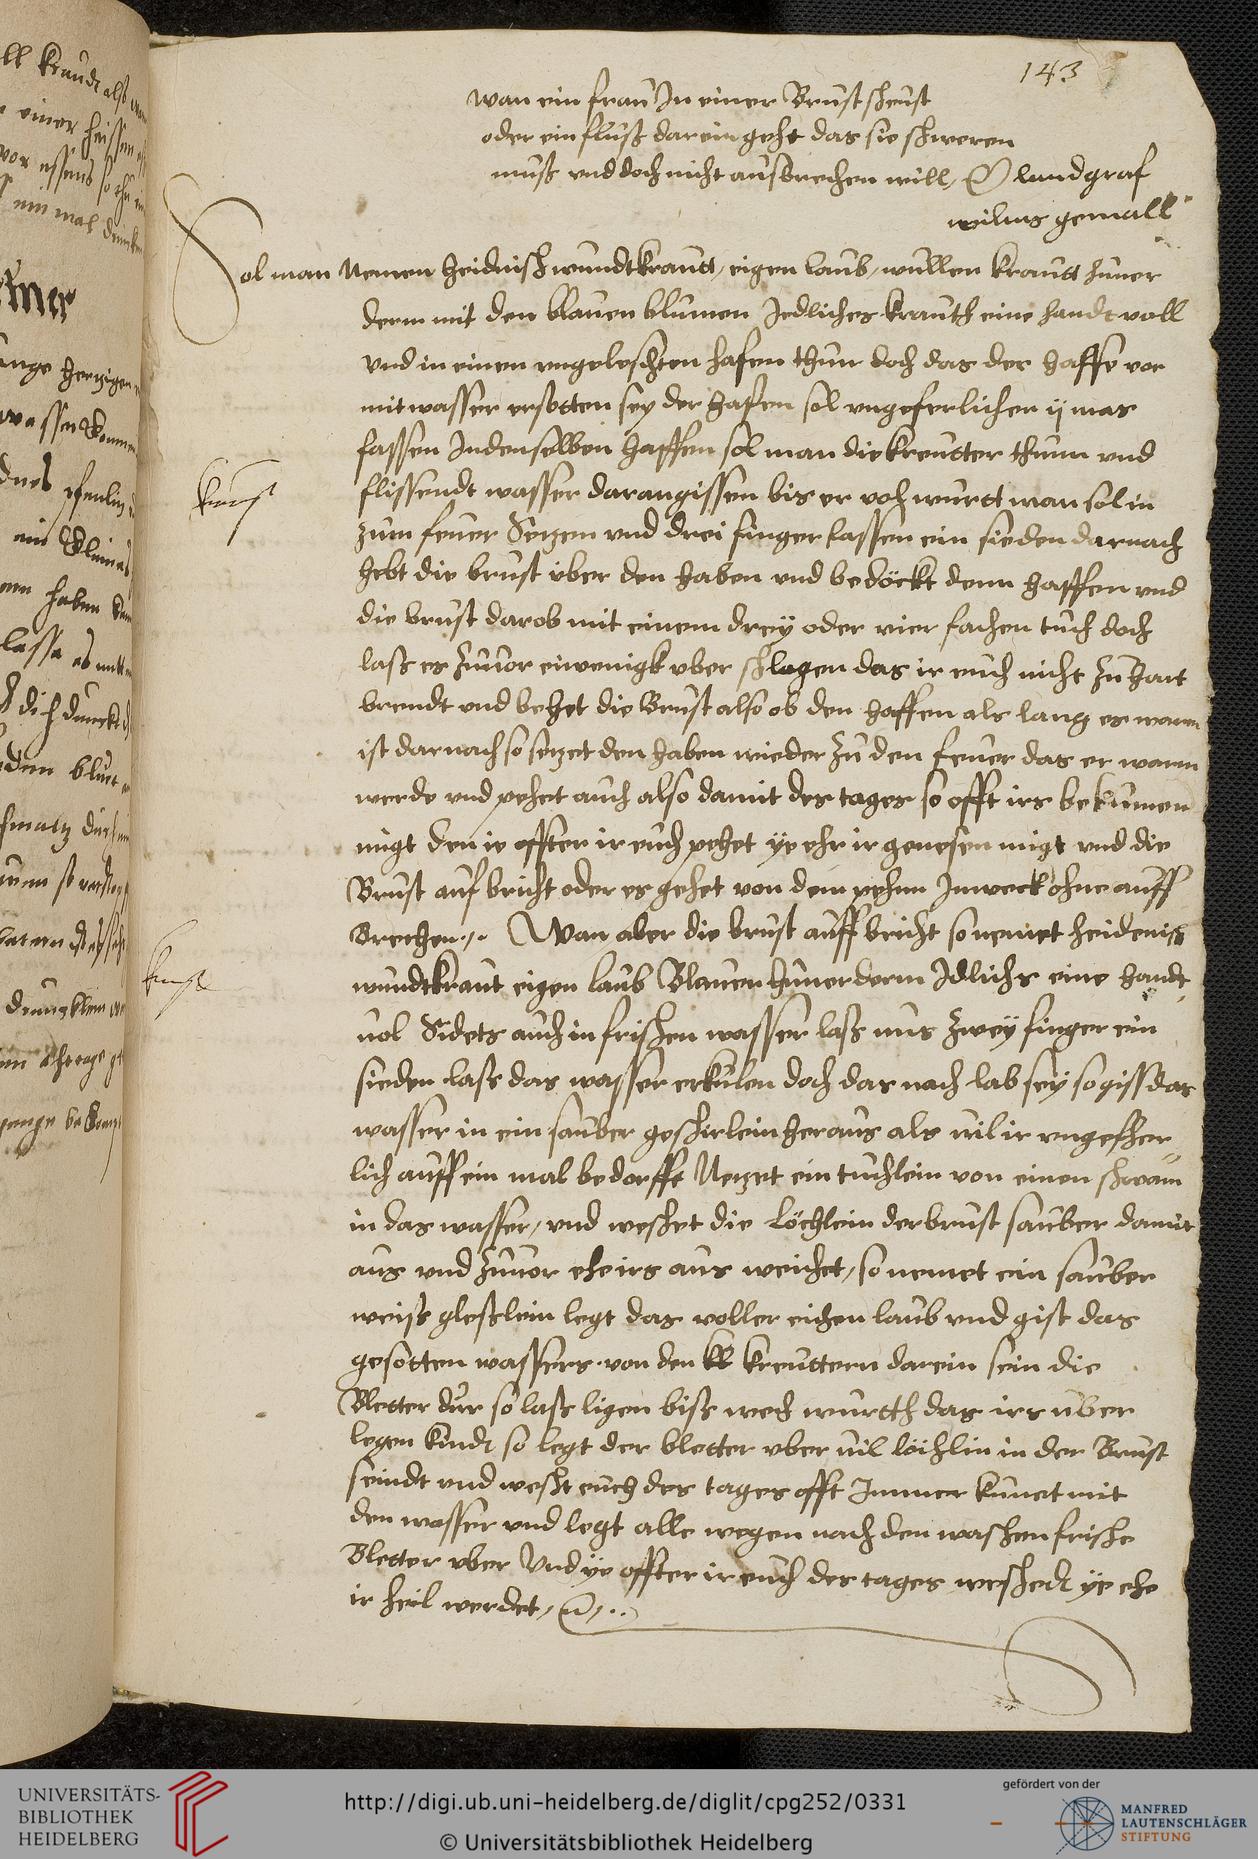 143
wan ein fraw In einer Brust scheust
oder ein fluß darein geht das sie schweren
muß vnd doch nicht ausbrechen will, landgraf
wilms gemall
Sol man Nemen heidnisch wundtkrautt, eigen laub, wullen krautt huner
derm mit den blauen blumen Jedliches krauth eine handt voll
vnd in einen vngeleschten hafen thun doch das der haffe vor
mit wasser ersotten sey der hafen sol vngeferlichen ij mas
fassen In denselben haffen sol man die kreutter thunn vnd
flissendt wasser daran gissen bis er voh wurtt man sol in
zum feuer Setzen vnd drei finger lassen ein sieden darnach
hebt die brust über den haben vnd bedöckt denn haffen vnd
die brust darob mit einem dreÿ oder vier fachen tuch doch
laß es zuuor ein wenigk vber schlagen das ir euch nicht zu hart
brendt vnd behet die Brust also ob den haffen als lang es warm
ist darnach so setzet den haben wieder zu den feuer das er warm
werde vnd pehet auch also damit des tages so offt irs bekumen
migt den ie offter ir euch pehet ye ehr ir genesen migt vnd die
Brust auf bricht oder es gehet von dem pehen Inweck ohne auff
Brechen Wan aber die brust auff bricht so nemet heidenis
wundtkraut eigen laub Blauen hunerderm Idlichs eine handt
uol Sidets auch in frischen wasser laß nur zweÿ finger ein
sieden laß das wasser erkulen doch dar nach lab sey so giss das
wasser in ein sauber geschirlein heraus als uil ir vngefher
lich auff ein mal bedorfft Netzet ein tuchlein von einen
in das wasser, vnd weschet die löchlein der brust sauber damit
aus vnd zuuor ehe irs aus weschet, so nemet ein sauber
weiß gleßlein legt das voller eichen laub vnd gist das
gesotten wassers von den kreuttern darein sein die
Bletter dur so laß ligen biß wech wurtth das irs uber
legen kindt so legt der bletter vber uil löchlin in der Brust
seindt vnd wescht euch des tages offt Immer kunet mit
den wasser vnd legt alle wegen nach den waschen frische
Bletter vber Vnd ye offter ir euch des tages weschedt ye ehe
ir heil werdet
UNIVERSITÄTS-
BIBLIOTHEK
HEIDELBERG
http://digi.ub.uni-heidelberg.de/diglit/cpg252/0331
© Universitätsbibliothek Heidelberg
gefördert von der
MANFRED
LAUTENSCHLÄGER
STIFTUNG